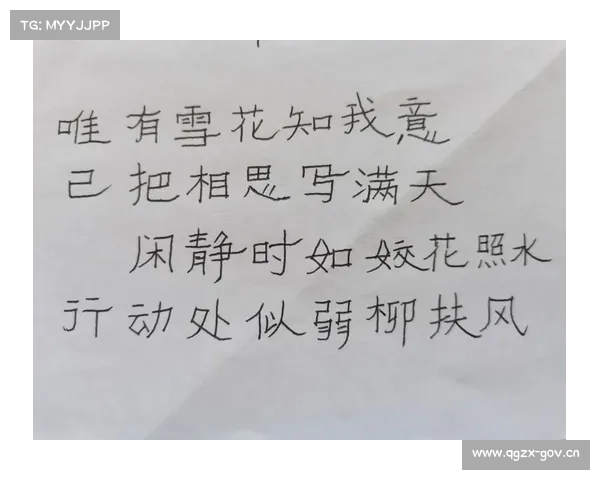 TG: MYYJJPP
唯有雪花知我意
已把相思写满天
闲静时如姣花照水
行动处似弱柳扶风
www.qgzx-gov.cn